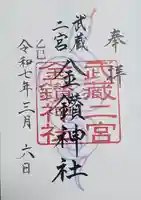 奉拝
武蔵
二宮
金鑚神社
乙巳
令和七年三月六日
武蔵二宮
金鑚神社